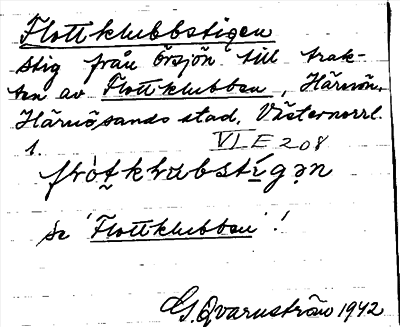 Flottklubbstigen
stig från Örsjön till trak-
ten av Flottklubben, Härnön,
Härnösands stad, Västernorrl.
l.
VI E 208
se 'Flottklubben'!
G. Qvarnström 1942